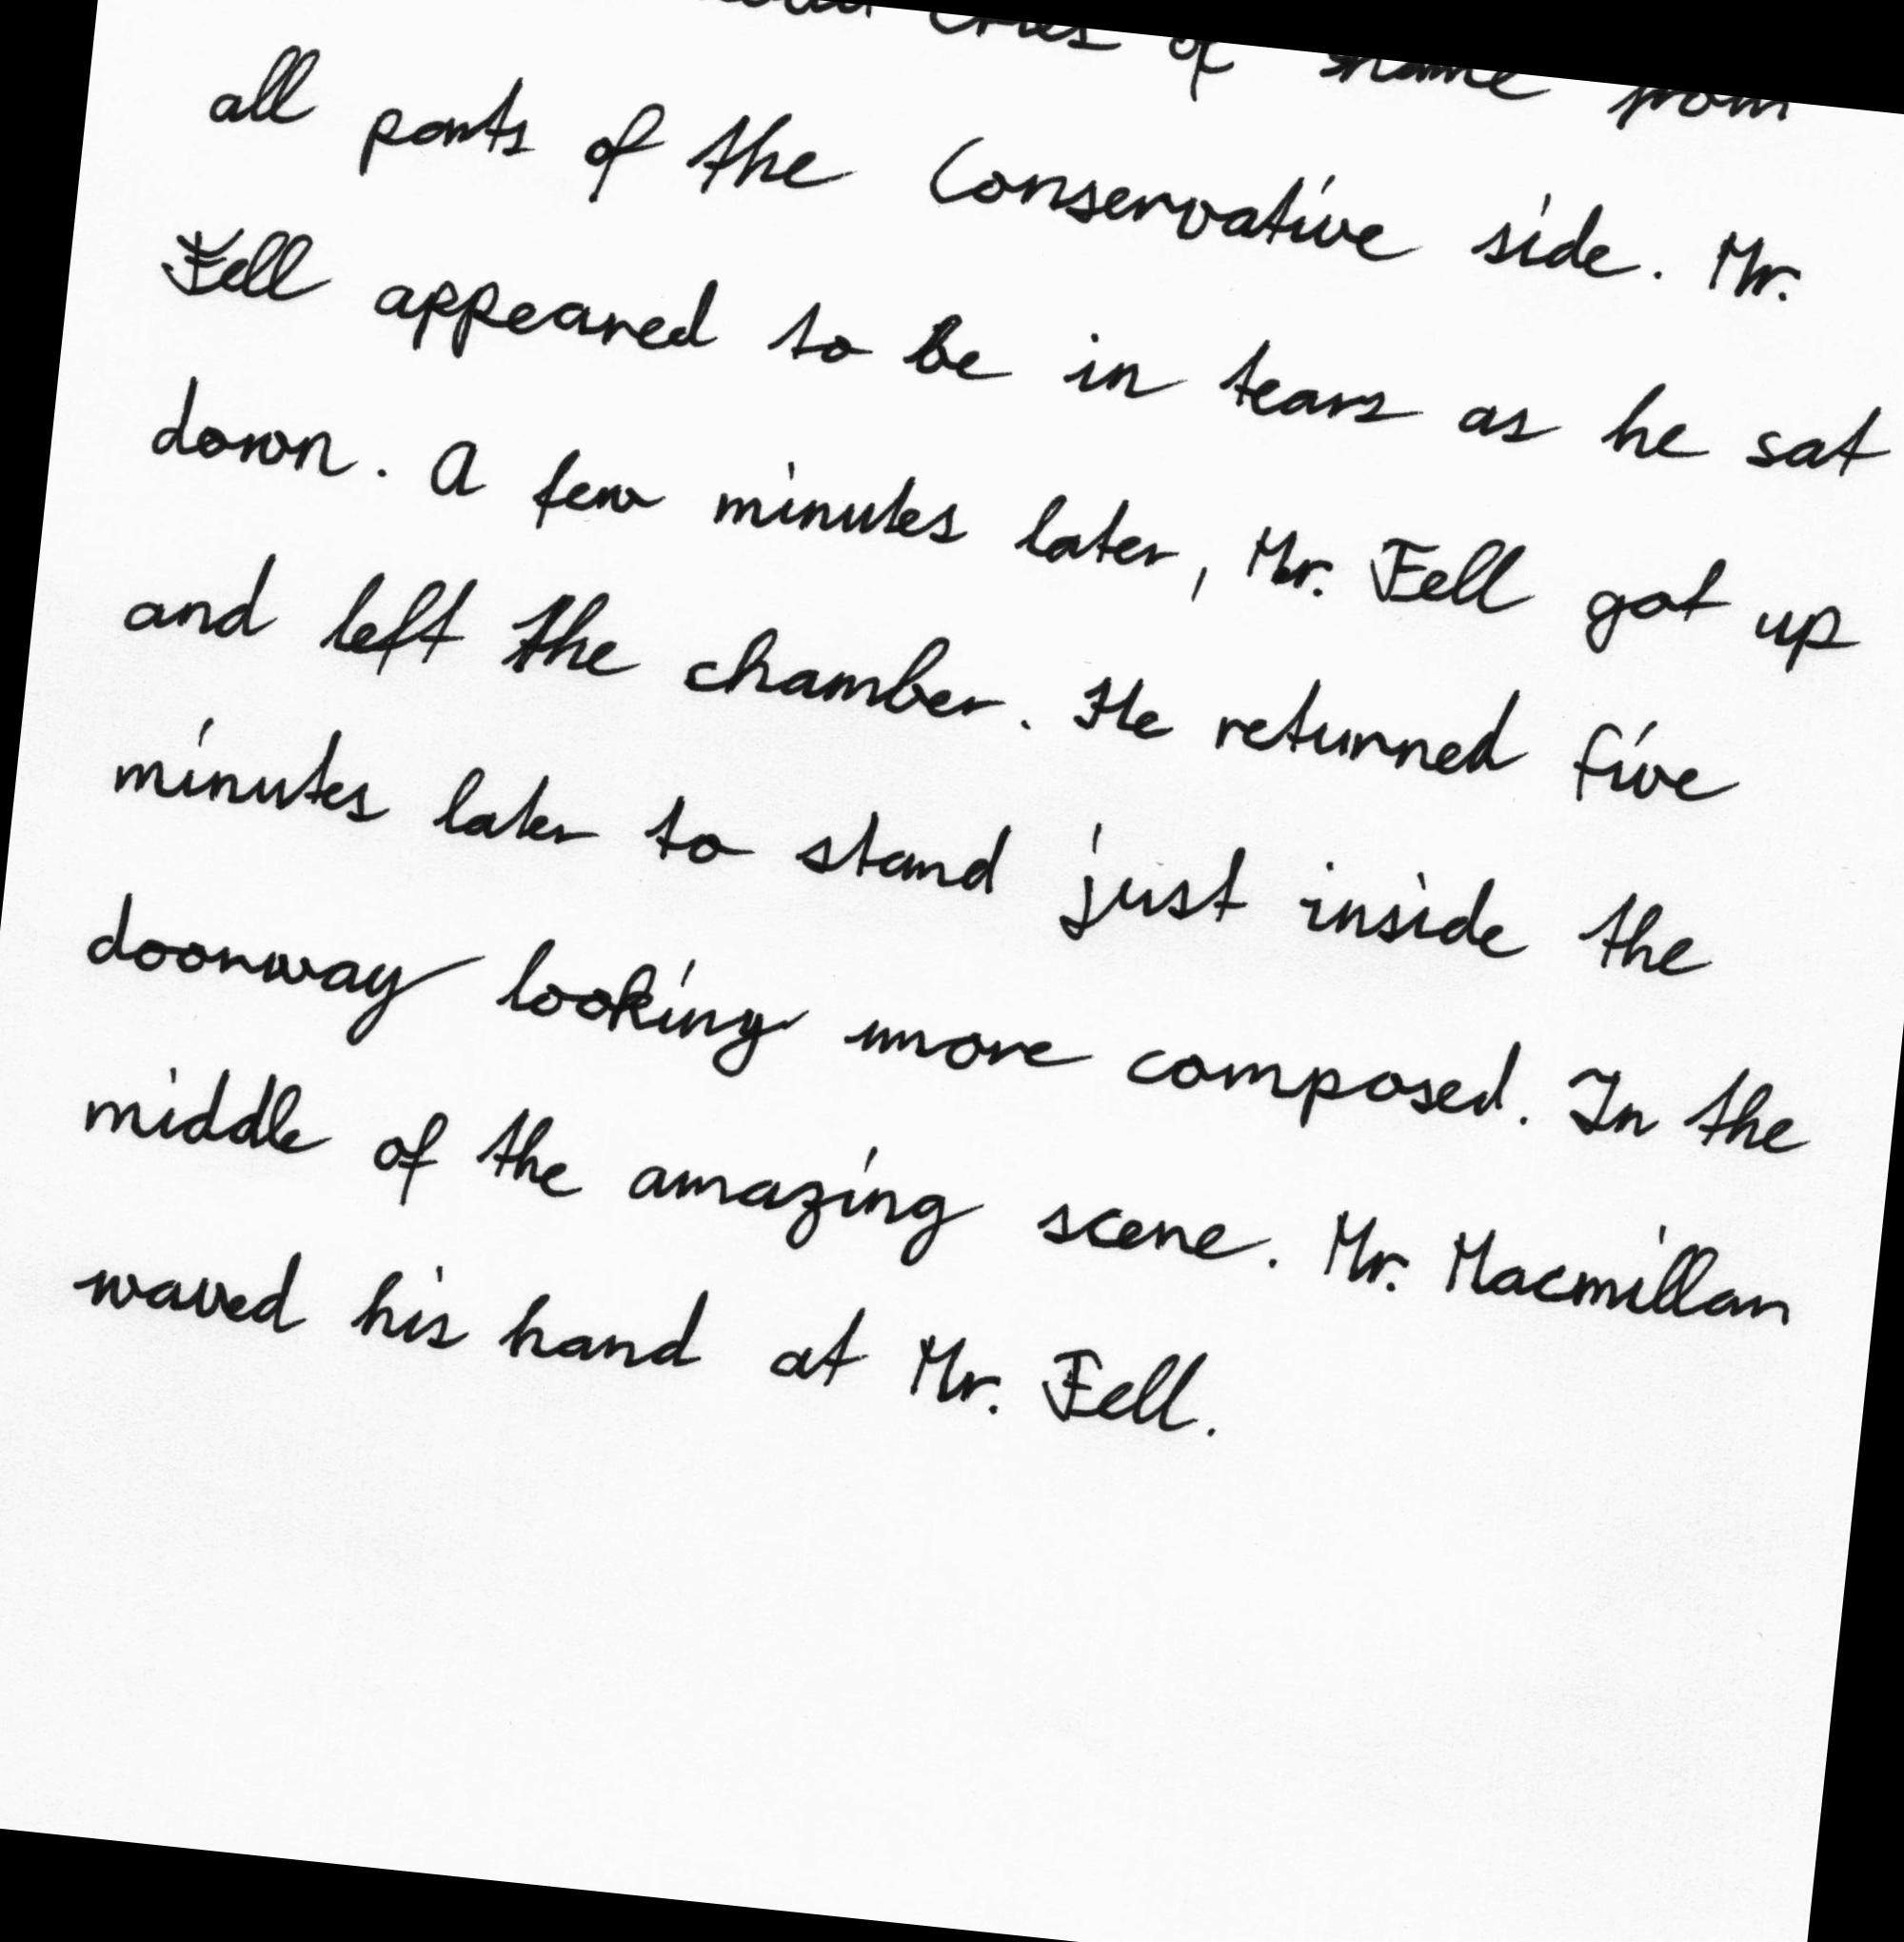 cries of shame from
all parts of the Conservative side. Mr.
Fell appeared to be in tears as he sat
down. A few minutes later, Mr. Fell got up
and left the chamber. He returned five
minutes later to stand just inside the
doorway looking more composed. In the
middle of the amazing scene. Mr. Macmillan
waved his hand at Mr. Fell.